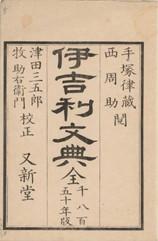 手塚律藏
西周助 閲
伊吉利文典 全
千八百
五十年版
津田三五郎
牧助右衛門 校正
又新堂